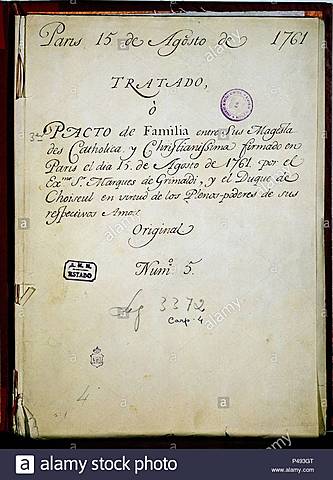 Paris 15 de Agosto de 1761
TRATADO,
ò
3er PACTO de Familia entre Sus Magesta
des Catholica y Christianissima firmado en
Paris el dia 15 de Agosto de 1761 por el
Exmo Sr. Marques de Grimaldi, y el Duque de
Choiseul en virtud de los Plenos-poderes de sus
respectivos Amos
Original
Numo 5.
A.H.N.
ESTADO
Leg 3372
Carp. 4
4
alamy
a alamy stock photo
P493GT
www.alamy.com